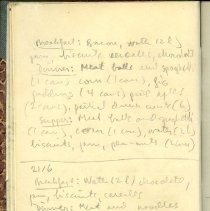 Breakfast: Bacon, water (2 l)
jam, biscuits cereals, chocolate
Dinner: Meat balls and spaghetti
(1 can) corn (1 can), fig
pudding (4 cans)
(2 cans), dried
Supper: Meat balls and spaghetti
(1 can), corn (1 can), water (2 l)
biscuits, jam, peanuts (1 can)
21/6
Breakfast: Water (2 l) chocolate,
jam, biscuits, cereals
Dinner: Meat and noodles